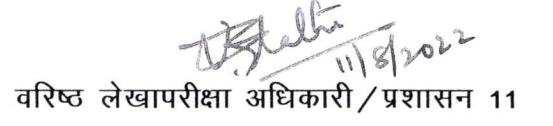 11/8/2022
वरिष्ठ लेखापरीक्षा अधिकारी / प्रशासन 11